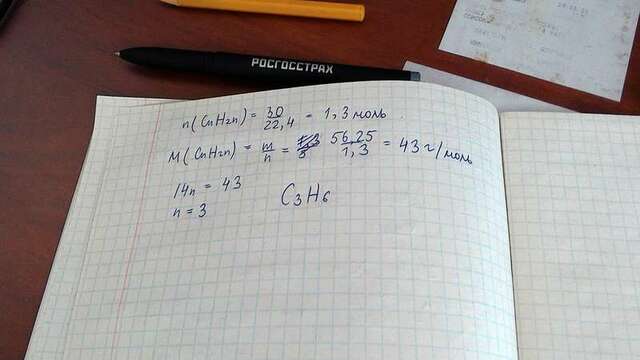 РОСГОССТРАХ
n(CnH2n) = 30/22,4 = 1,3 моль
M(CnH2n) = m/n = 56,25/1,3 = 43 г/моль
14n = 43
n = 3
C₃H₆